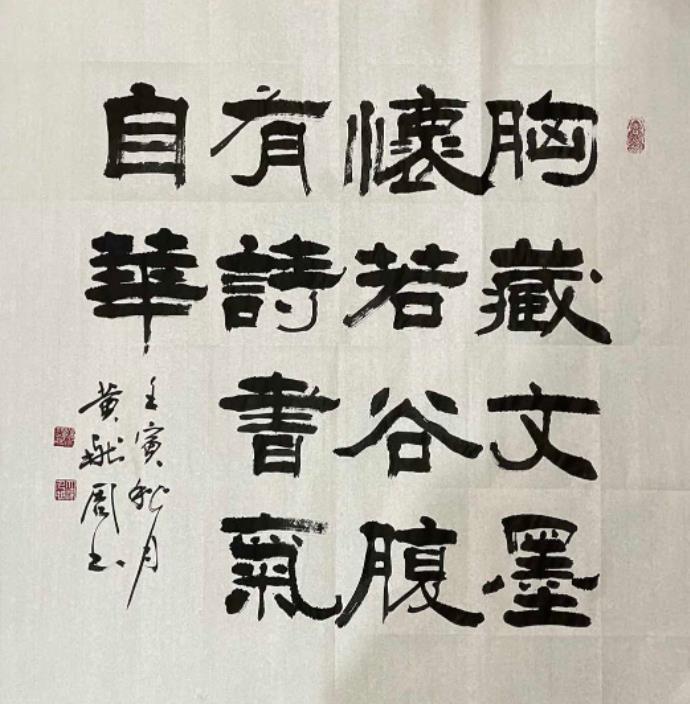 胸藏文墨
懷若谷腹
有詩書氣
自華
壬寅秋月
黄周书